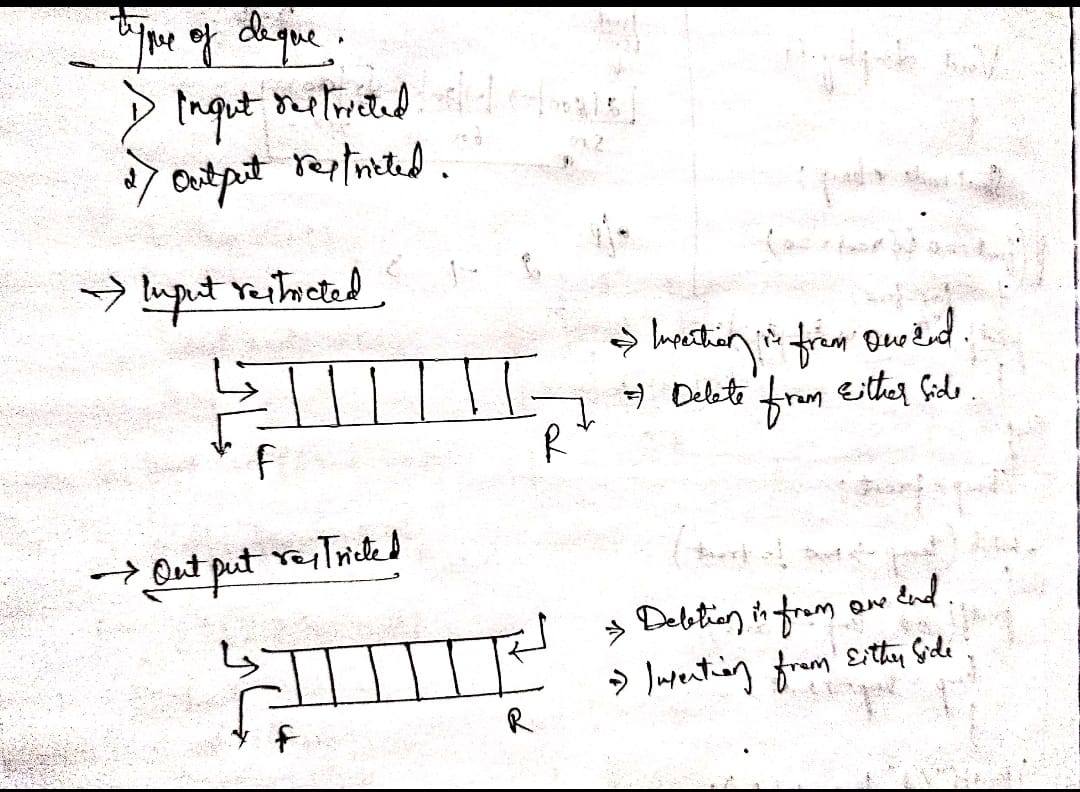 type of deque.
1) Input restricted
2) Output restricted.
→ Input restricted
⇒ Insertion is from One End.
⇒ Delete from Either Side.
F R
→ Output restricted
⇒ Deletion is from one End.
⇒ Insertion from Either Side.
F R